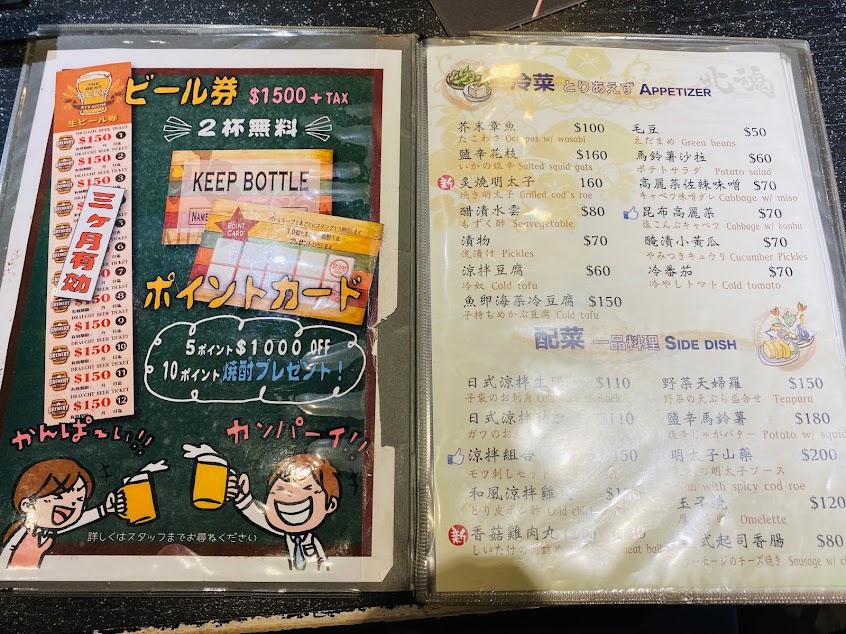 ビール券 $1500+TAX
2杯無料
生ビール券
DRAUGHT BEER TICKET
$150 1
DRAUGHT BEER TICKET
$150 2
DRAUGHT BEER TICKET
$150 3
$150
$150
DRAUGHT BEER TICKET
$150 8
DRAUGHT BEER TICKET
$150 9
DRAUGHT BEER TICKET
$150 10
DRAUGHT BEER TICKET
$150 11
DRAUGHT BEER TICKET
$150 12
三ヶ月有効
KEEP BOTTLE
NAME
POINT CARD
ポイントカード
5ポイント$1000 OFF
10ポイント焼酎プレゼント!
かんぱ〜い!!
カンパーイ!!
詳しくはスタッフまでお尋ねください
冷菜 とりあえず APPETIZER
芥末章魚 $100
たこわさ Octopus w/ wasabi
鹽辛花枝 $160
いかの塩辛 Salted squid guts
新 炙燒明太子 160
焼き明太子 Grilled cod's roe
醋漬水雲 $80
もずく酢 Seavegetable
漬物 $70
浅漬け Pickles
涼拌豆腐 $60
冷奴 Cold tofu
魚卵海菜冷豆腐 $150
子持ちめかぶ豆腐 Cold tofu
毛豆 $50
えだまめ Green beans
馬鈴薯沙拉 $60
ポテトサラダ Potato salad
高麗菜佐辣味噌 $70
キャベツ味噌ダレ Cabbage w/ miso
昆布高麗菜 $70
塩こんぶキャベツ Cabbage w/ konbu
醃漬小黃瓜 $70
やみつきキュウリ Cucumber Pickles
冷番茄 $70
冷やしトマト Cold tomato
配菜 一品料理 SIDE DISH
日式涼拌生 $110
子袋のお刺身
日式涼拌 $110
ガツのお
涼拌組合 150
モツ刺しセット
和風涼拌雞
とり皮ポン酢 Cold
新 香菇雞肉丸
しいた meat ball
野菜天婦羅 $150
野菜の天ぷら盛合せ Tenpura
鹽辛馬鈴薯 $180
じゃがバター Potato w/ squid
明太子山藥 $200
の明太子ソース
with spicy cod roe
玉子燒 $120
Omelette
式起司香腸 $80
ーセージのチーズ焼き Sausage w/